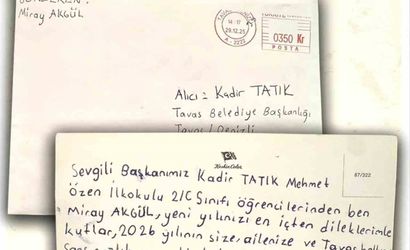 GÖNDEREN:
Miray AKGÜL
14 - 17
29.12.25
A - 2222
0350 Kr
POSTA
Alıcı = Kadir TATIK
Tavas Belediye Başkanlığı
Tavas / Denizli
67/322
Sevgili Başkanımız Kadir TATIK Mehmet
Özen İlkokulu 2/C Sınıfı öğrencilerinden ben
Miray AKGÜL, yeni yılınızı en içten dileklerimle
kutlar, 2026 yılının size, ailenize ve Tavas